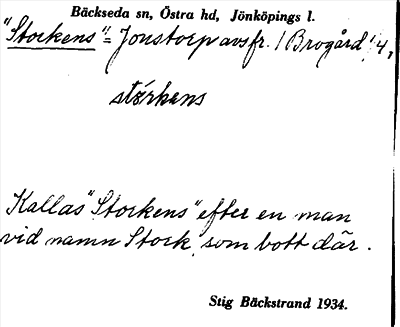 Bäckseda sn, Östra hd, Jönköpings l.
"Storkens" = Jonstorp avs fr. 1 Brogård 4,
stårkens
Kallas "Storkens" efter en man
vid namn Stork, som bott där.
Stig Bäckstrand 1934.